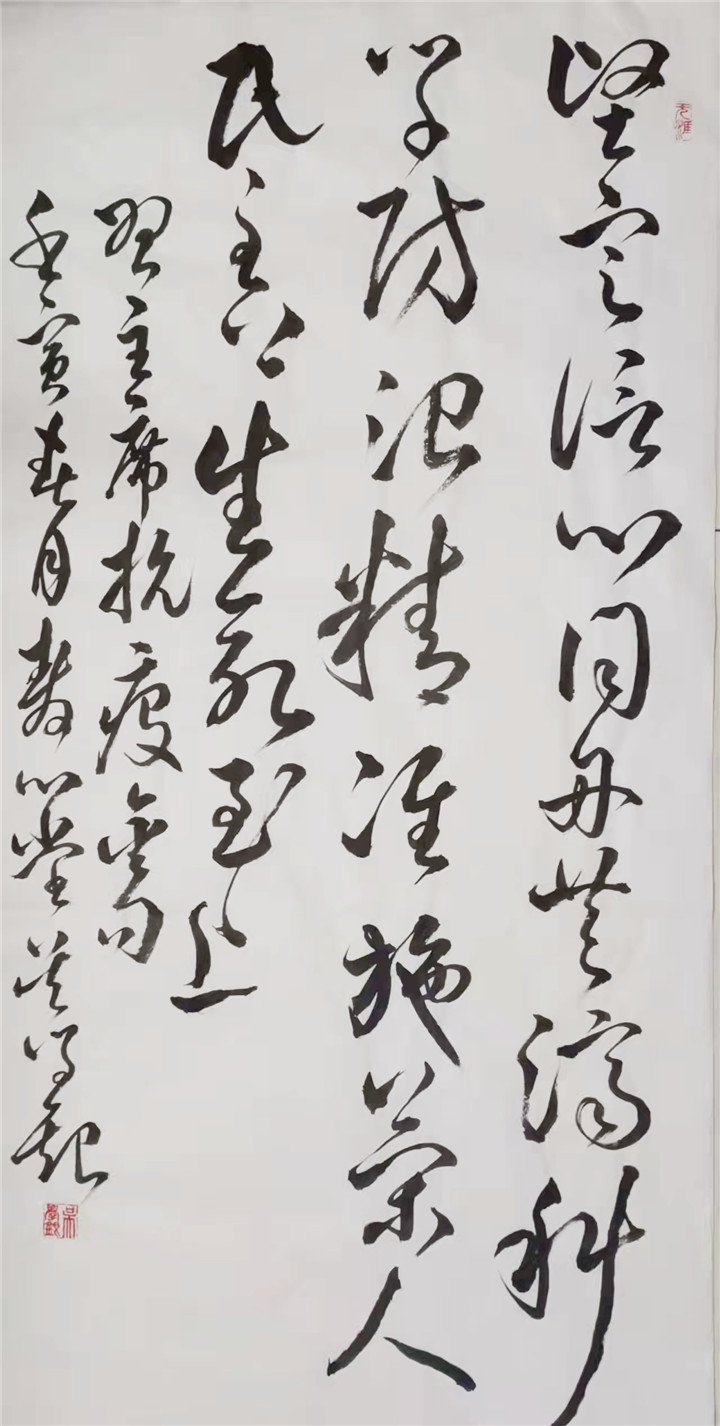 坚定信心同舟共济科
学防治精准施策人
民至上生命至上
習主席抗疫金句
壬寅春月心堂吴